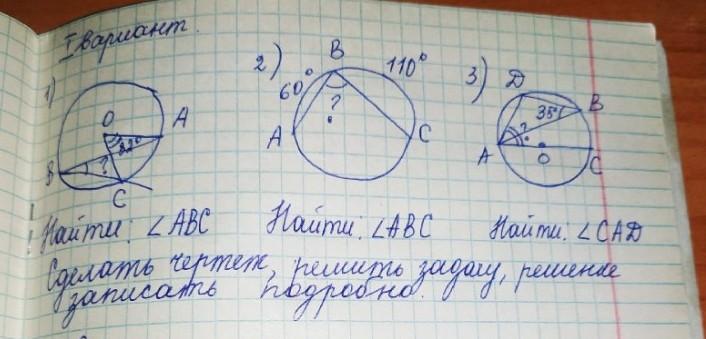 I вариант.
1) O A 82° B ? C
2) B 60° 110° ? A C
3) D B 35° ? A O C
Найти: ∠ABC Найти: ∠ABC Найти: ∠CAD
Сделать чертеж, решить задачу, решение
записать подробно.